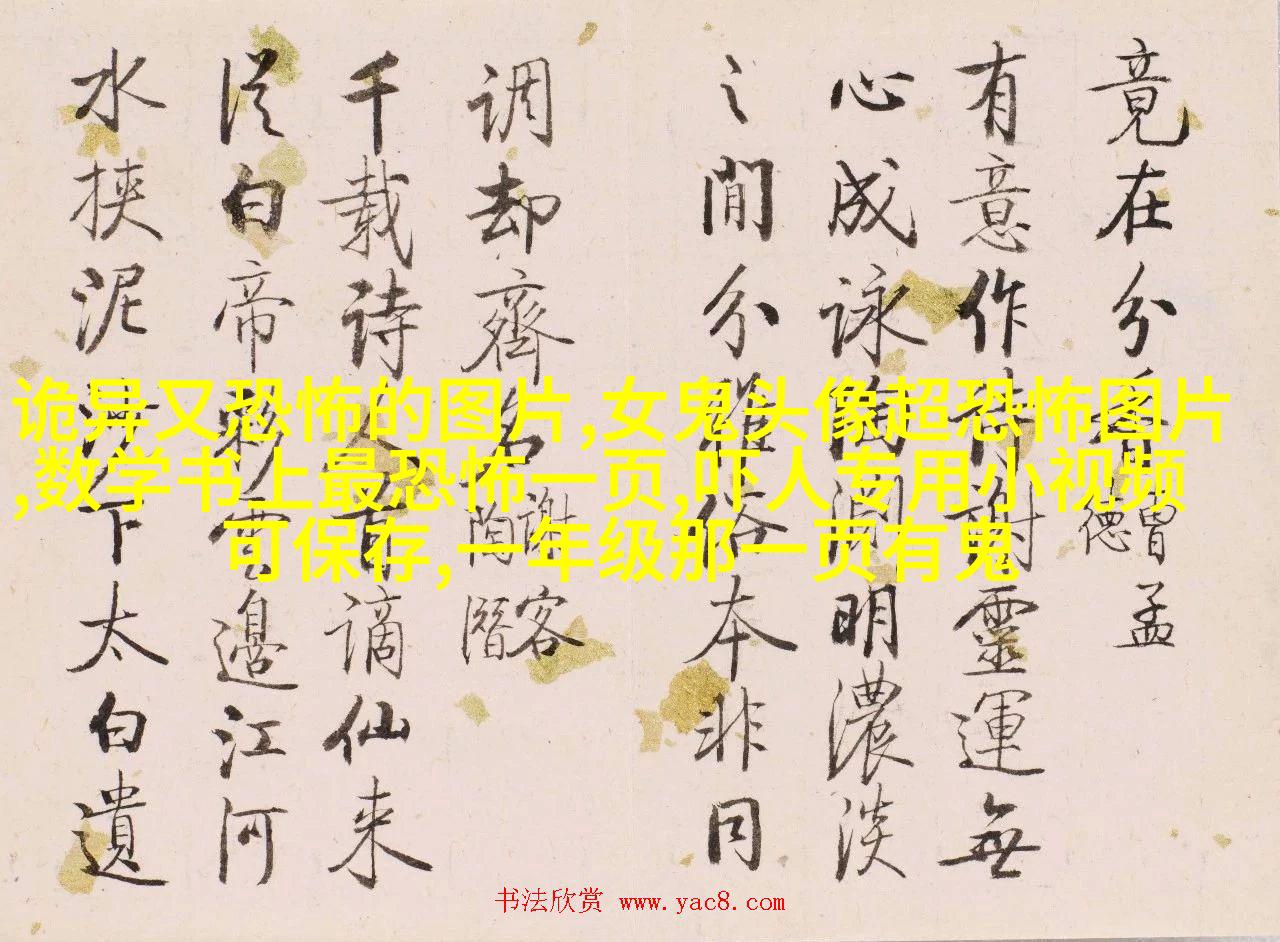 竟在分香
曹孟
德
有意作詩謝靈運無
心成詠陶淵明濃淡
之間分雅俗本非同
調却齊名
謝客
陶潛
千載詩人有謫仙来
従白帝彩雲邊江河
水挾泥沙下太白遺
诡异又恐怖的图片,女鬼头像超恐怖图片
,数学书上最恐怖一页,吓人专用小视频
可保存,一年级那一页有鬼
书法欣赏 www.yac8.com